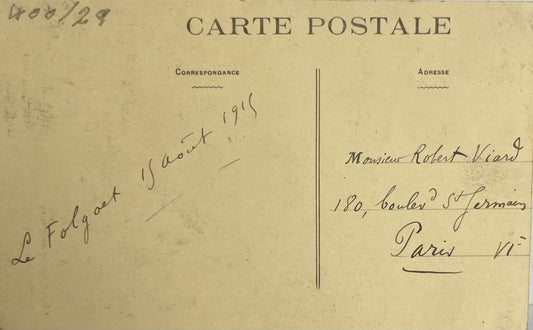 400/29
CARTE POSTALE
CORRESPONDANCE
ADRESSE
Le Folgoet 15 août 1915
Monsieur Robert Viard
180, boulevd St Germain
Paris VIe